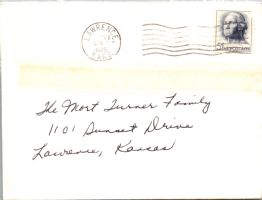 LAWRENCE,
KANS.
The Mort Turner Family
1101 Sunset Drive
Lawrence, Kansas